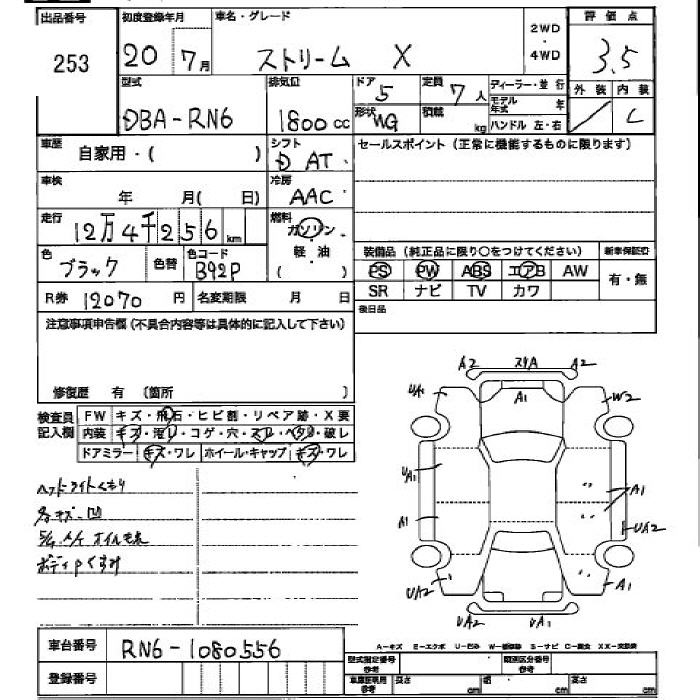 出品番号 初度登録年月 車名・グレード 2WD・4WD 評価点
253 20 7月 ストリーム X 3.5
型式 排気量 ドア 定員 ディーラー・並行 外装 内装
DBA-RN6 1800cc 5 7人 モデル年式 年 C
形状 WG 積載 kg ハンドル 左・右
車歴 自家用・( ) シフト D AT セールスポイント(正常に機能するものに限ります)
車検 年 月(日) 冷房 AAC
走行 12万4千256km 燃料 ガソリン 軽・油 ( )
色 ブラック 色替 色コード B92P
装備品(純正品に限り○をつけてください) 新車保証書
PS PW ABS エアB AW 有・無
SR ナビ TV カワ
R券 12070円 名変期限 月 日 後日品
注意事項申告欄(不具合内容等は具体的に記入して下さい)
修復歴 有 (箇所 )
検査員記入欄 FW キズ・飛石・ヒビ割・リペア跡・X要
内装 キズ・汚レ・コゲ・穴・スレ・ヘタリ・破レ
ドアミラー キズ・ワレ ホイール・キャップ キズ・ワレ
ヘッドライトくもり
各キズ凹
オイルモレ
ボディくすみ
A2 スリA A2
UA1 A1 W2
UA1 A1
A1 UA2
UA2 A1
UA2 UA1
A-キズ E-エクボ U-凹ミ W-補修跡 S-サビ C-腐食 XX-交換済
車台番号 RN6-1080556
型式指定番号 参考 類別区分番号 参考
登録番号 車庫証明用 参考 長さ cm 幅 cm 高さ cm